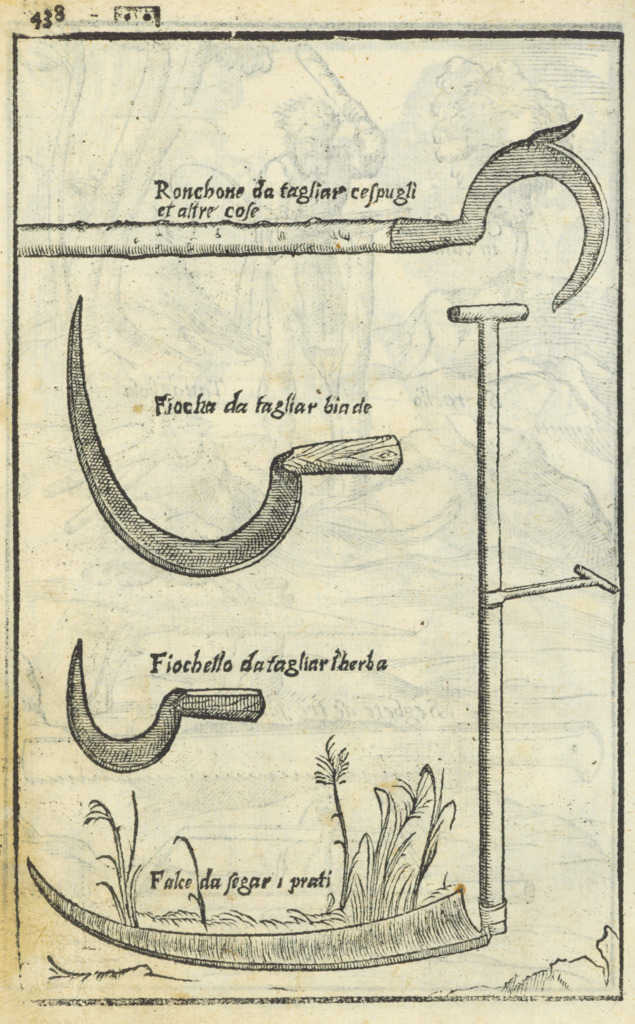 438
Ronchone da tagliar cespugli
et altre cose
Fiocha da tagliar biade
Fiochello da tagliar lherba
Falce da segar i prati